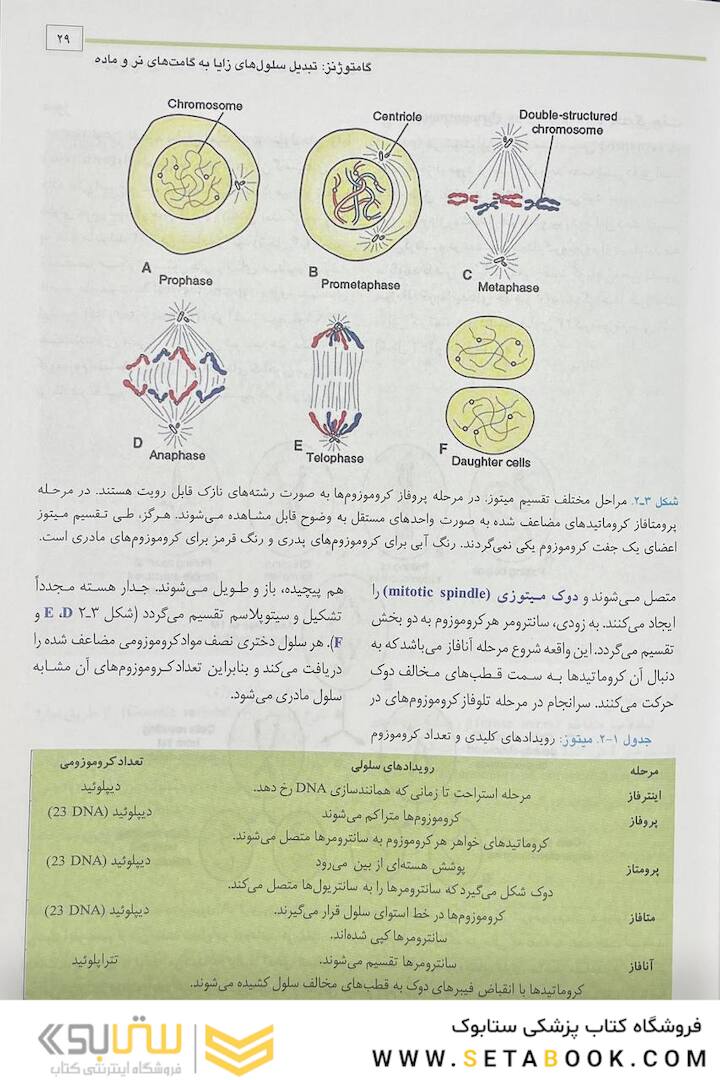 ۲۹
گامتوژنز: تبدیل سلول‌های زایا به گامت‌های نر و ماده
Chromosome
Centriole
Double-structured
chromosome
A
Prophase
B
Prometaphase
C
Metaphase
D
Anaphase
E
Telophase
F
Daughter cells
شکل ۳-۲. مراحل مختلف تقسیم میتوز. در مرحله پروفاز کروموزوم‌ها به صورت رشته‌های نازک قابل رویت هستند. در مرحله
پرومتافاز کروماتیدهای مضاعف شده به صورت واحدهای مستقل به وضوح قابل مشاهده می‌شوند. هرگز، طی تقسیم میتوز
اعضای یک جفت کروموزوم یکی نمی‌گردند. رنگ آبی برای کروموزوم‌های پدری و رنگ قرمز برای کروموزوم‌های مادری است.
متصل می‌شوند و دوک میتوزی (mitotic spindle) را
ایجاد می‌کنند. به زودی، سانترومر هر کروموزوم به دو بخش
تقسیم می‌گردد. این واقعه شروع مرحله آنافاز می‌باشد که به
دنبال آن کروماتیدها به سمت قطب‌های مخالف دوک
حرکت می‌کنند. سرانجام در مرحله تلوفاز کروموزوم‌های در
هم پیچیده، باز و طویل می‌شوند. جدار هسته مجدداً
تشکیل و سیتوپلاسم تقسیم می‌گردد (شکل ۳-۲ D، E و
F). هر سلول دختری نصف مواد کروموزومی مضاعف شده را
دریافت می‌کند و بنابراین تعداد کروموزوم‌های آن مشابه
سلول مادری می‌شود.
جدول ۱-۲. میتوز: رویدادهای کلیدی و تعداد کروموزوم
مرحله رویدادهای سلولی تعداد کروموزومی
اینترفاز مرحله استراحت تا زمانی که همانندسازی DNA رخ دهد. دیپلوئید
پروفاز کروموزوم‌ها متراکم می‌شوند دیپلوئید (23 DNA)
کروماتیدهای خواهر هر کروموزوم به سانترومرها متصل می‌شوند.
پرومتاز پوشش هسته‌ای از بین می‌رود دیپلوئید (23 DNA)
دوک شکل می‌گیرد که سانترومرها را به سانتریول‌ها متصل می‌کند.
متافاز کروموزوم‌ها در خط استوای سلول قرار می‌گیرند. دیپلوئید (23 DNA)
سانترومرها کپی شده‌اند.
آنافاز سانترومرها تقسیم می‌شوند. تتراپلوئید
کروماتیدها با انقباض فیبرهای دوک به قطب‌های مخالف سلول کشیده می‌شوند.
فروشگاه کتاب پزشکی ستابوک
WWW.SETABOOK.COM
ستابوک
فروشگاه اینترنتی کتاب